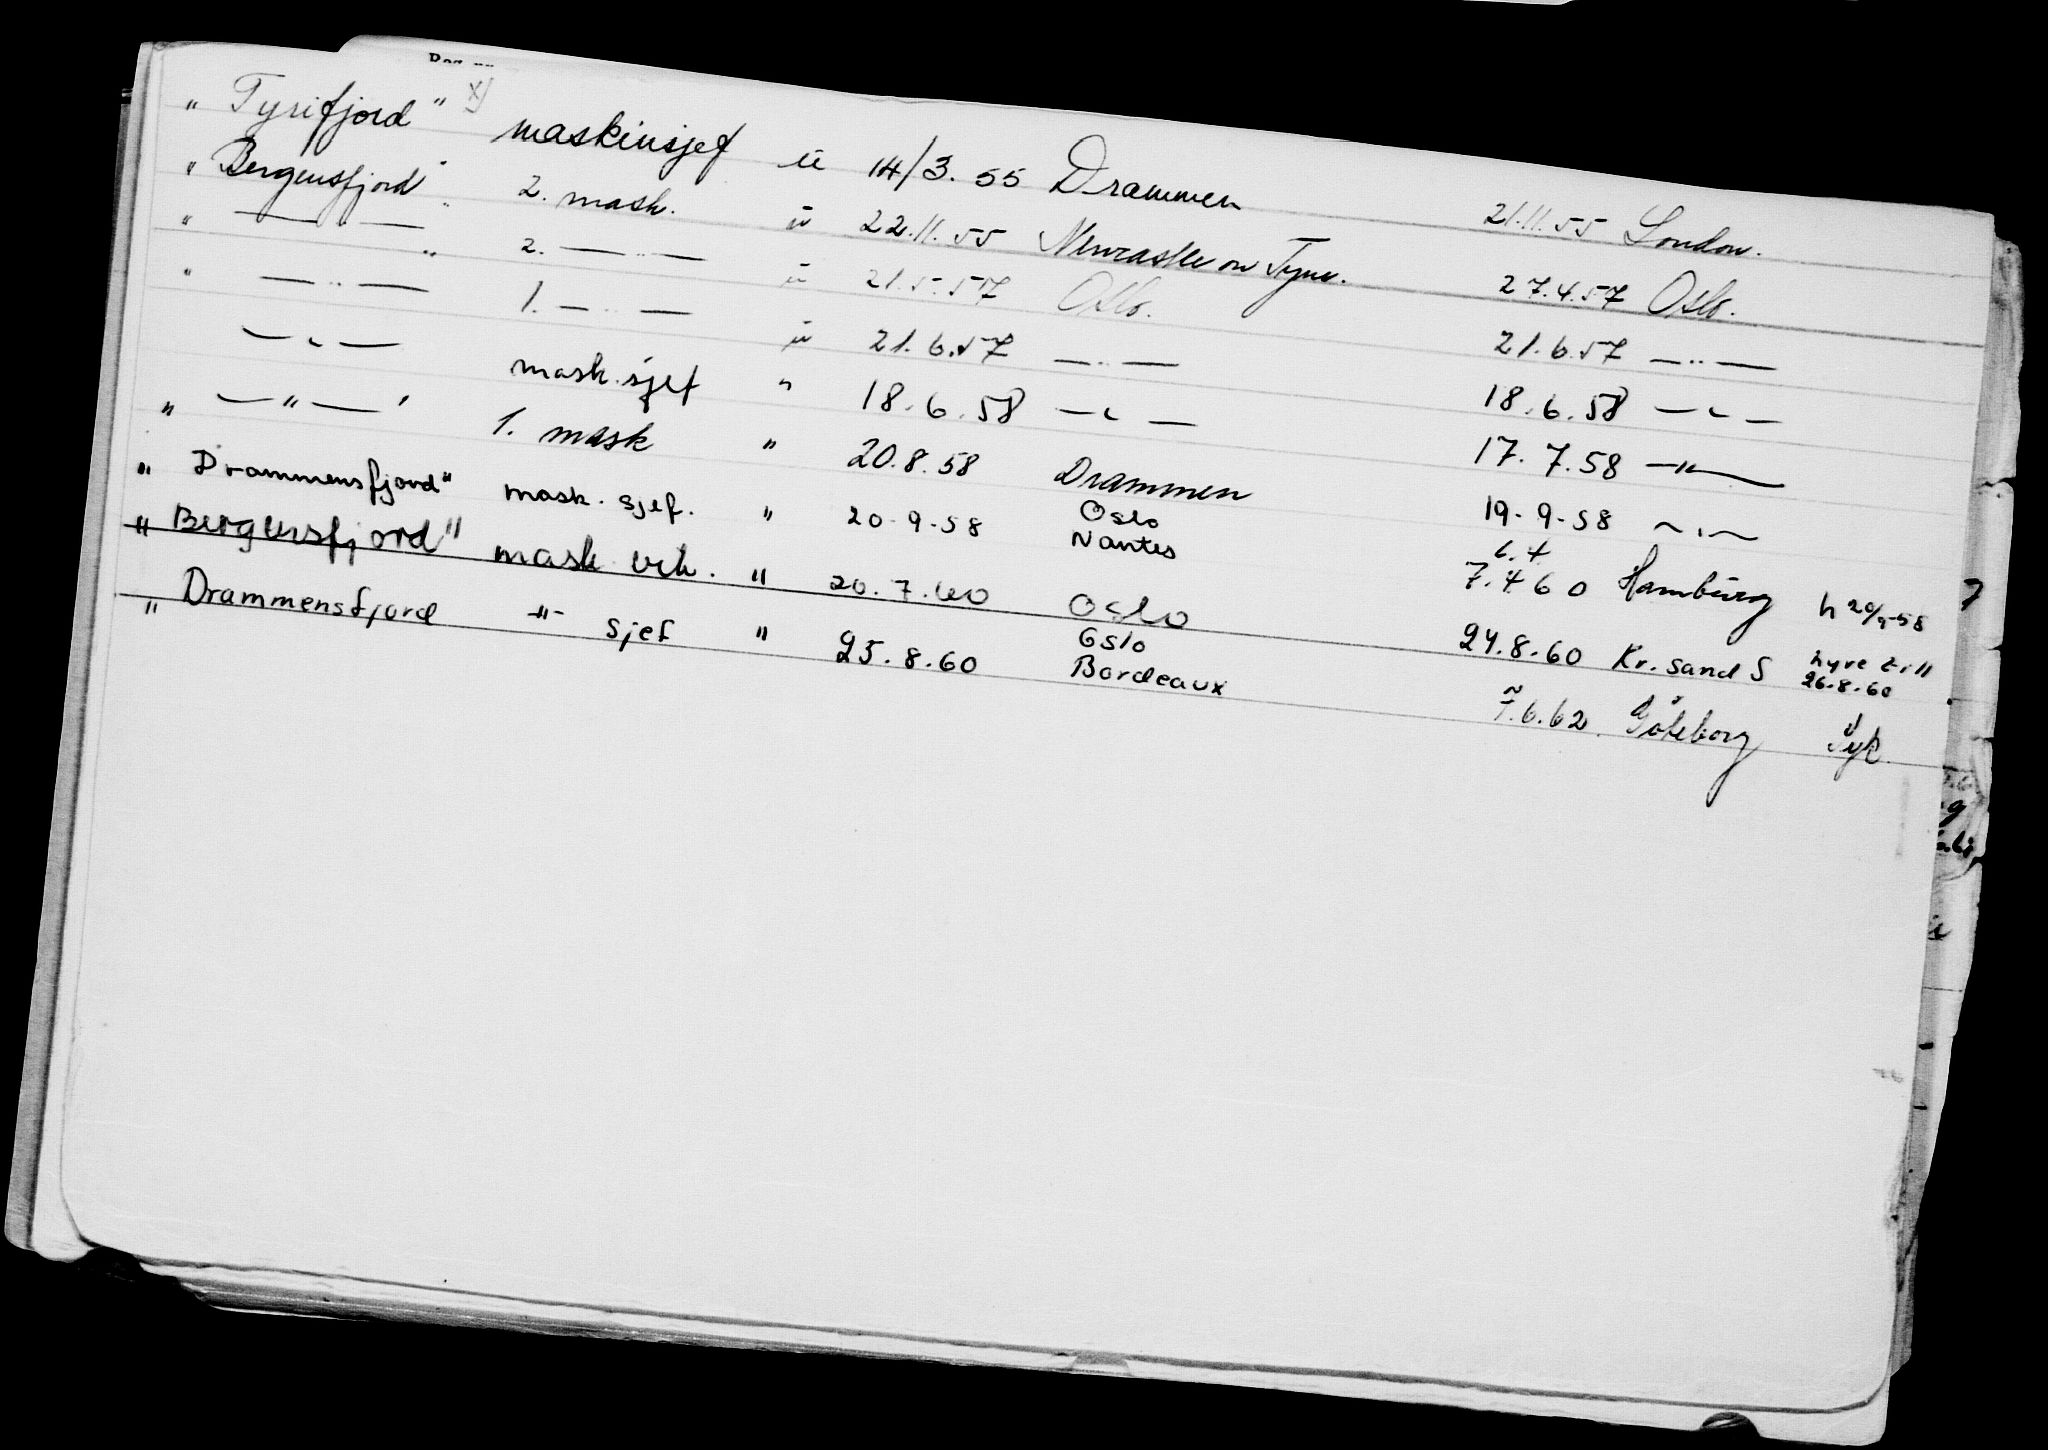 "Tyrifjord" x) maskinsjef u 14/3. 55 Drammen 21.11.55 London.
"Bergensfjord" 2. mask. u 22.11.55 Newcastle on Tyne. 27.4.57 Oslo.
" —..— " 2. —..— u 21.5.57 Oslo. 21.6.57 —..—
" —..— 1. —..— u 21.6.57 —..— 18.6.58 —"—
—"— mask.sjef " 18.6.58 —"— 17.7.58 —"—
" —"— " 1. mask " 20.8.58 Drammen 19.9.58 —"—
"Drammensfjord" mask. sjef. " 20.9.58 Oslo Nantes 6.4 7.4 60 Hamburg h 20/9-58
"Bergensfjord" mask " 20.7.60 Oslo 24.8.60 Kr.sand S hyre till 26.8.60
" Drammensfjord -"- sjef " 25.8.60 Oslo Bordeaux 7.6.62. Göteborg Syk.